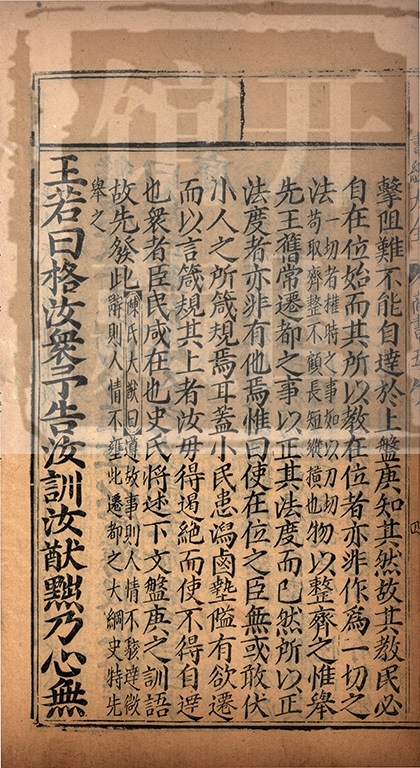 擊阻難不能自達於上盤庚知其然故其教民必
自在位始而其所以教在位者亦非作為一切之
法一切者權時之事如以刀切物苟取齊整不顧長短縱橫也以整齊之惟舉
先王舊常遷都之事以正其法度而已然所以正
法度者亦非有他焉惟曰使在位之臣無或敢伏
小人之所箴規焉耳蓋小民患潟鹵墊隘有欲遷
而以言箴規其上者汝毋得遏絕而使不得自達
也衆者臣民咸在也史氏將述下文盤庚之訓語
故先發此陳氏大猷曰遵故事則人情不駭達微辭則人情不壅此遷都之大綱史特先
舉之
王若曰格汝衆予告汝訓汝猷黜乃心無